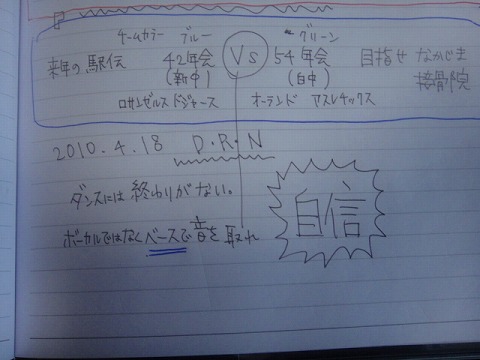 チームカラー ブルー グリーン
来年の駅伝 42年会 VS 54年会 目指せ なかじま
(新中) (白中) 接骨院
ロサンゼルスドジャース オークランド アスレチックス
2010.4.18 D・R・N
ダンスには終わりがない。
自信
ボーカルではなくベースで音を取れ